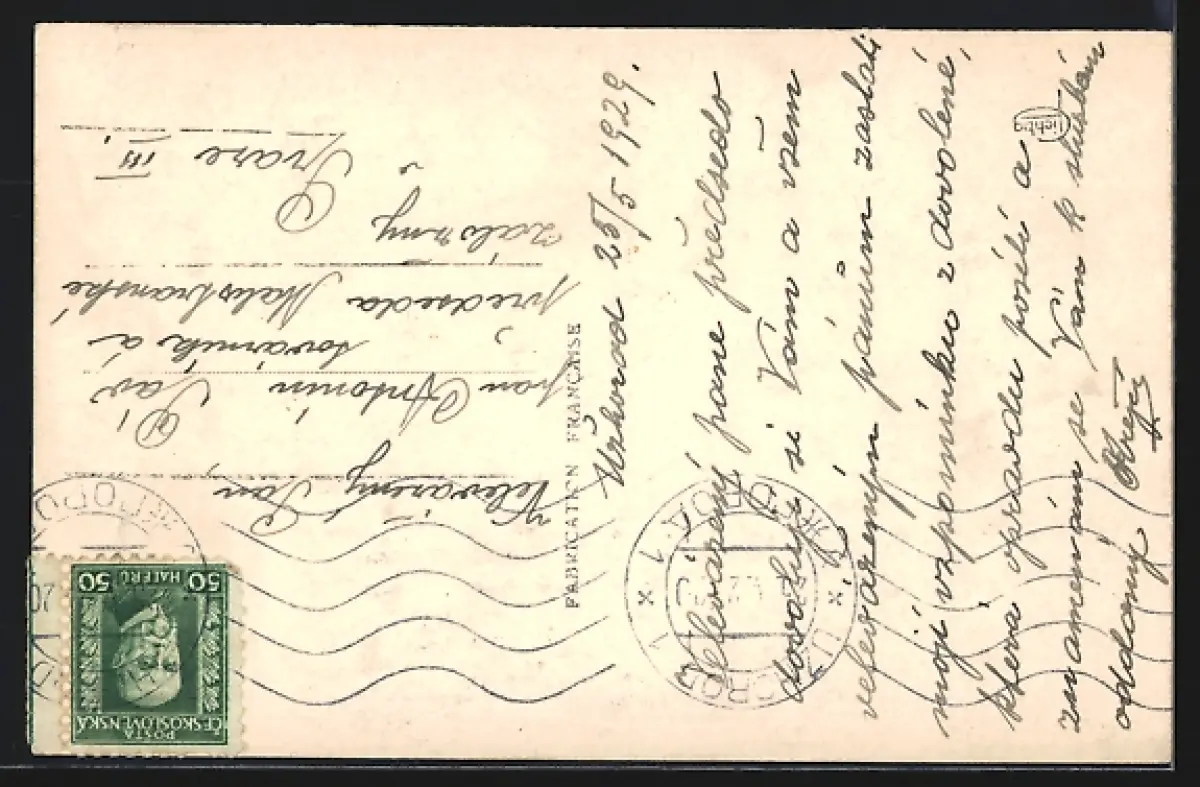 Užhorod 25/5 1929.
Velevážený pane předsedo
dovoluji si Vám a všem
velevázeným pánům zaslati
moji vzpomínku z dovolené,
která opravdu posílí a
znamenám se Vám k službám
oddaný
Velevážený Pan
pan Antonín
továrník a
předseda Malostranské
záložny
v Praze
III.
FABRICATION FRANÇAISE
POSTA
ČESKOSLOVENSKÁ
50 HALÉŘŮ 50
UŽHOROD 1